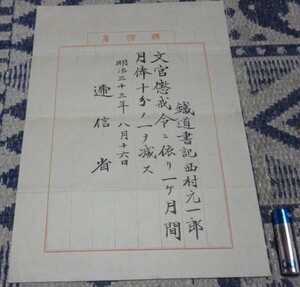 鐵道書記西村元一郎
文官懲戒令ニ依リ一ケ月間
月俸十分ノ一ヲ減ス
明治三十三年八月十六日
遞信省